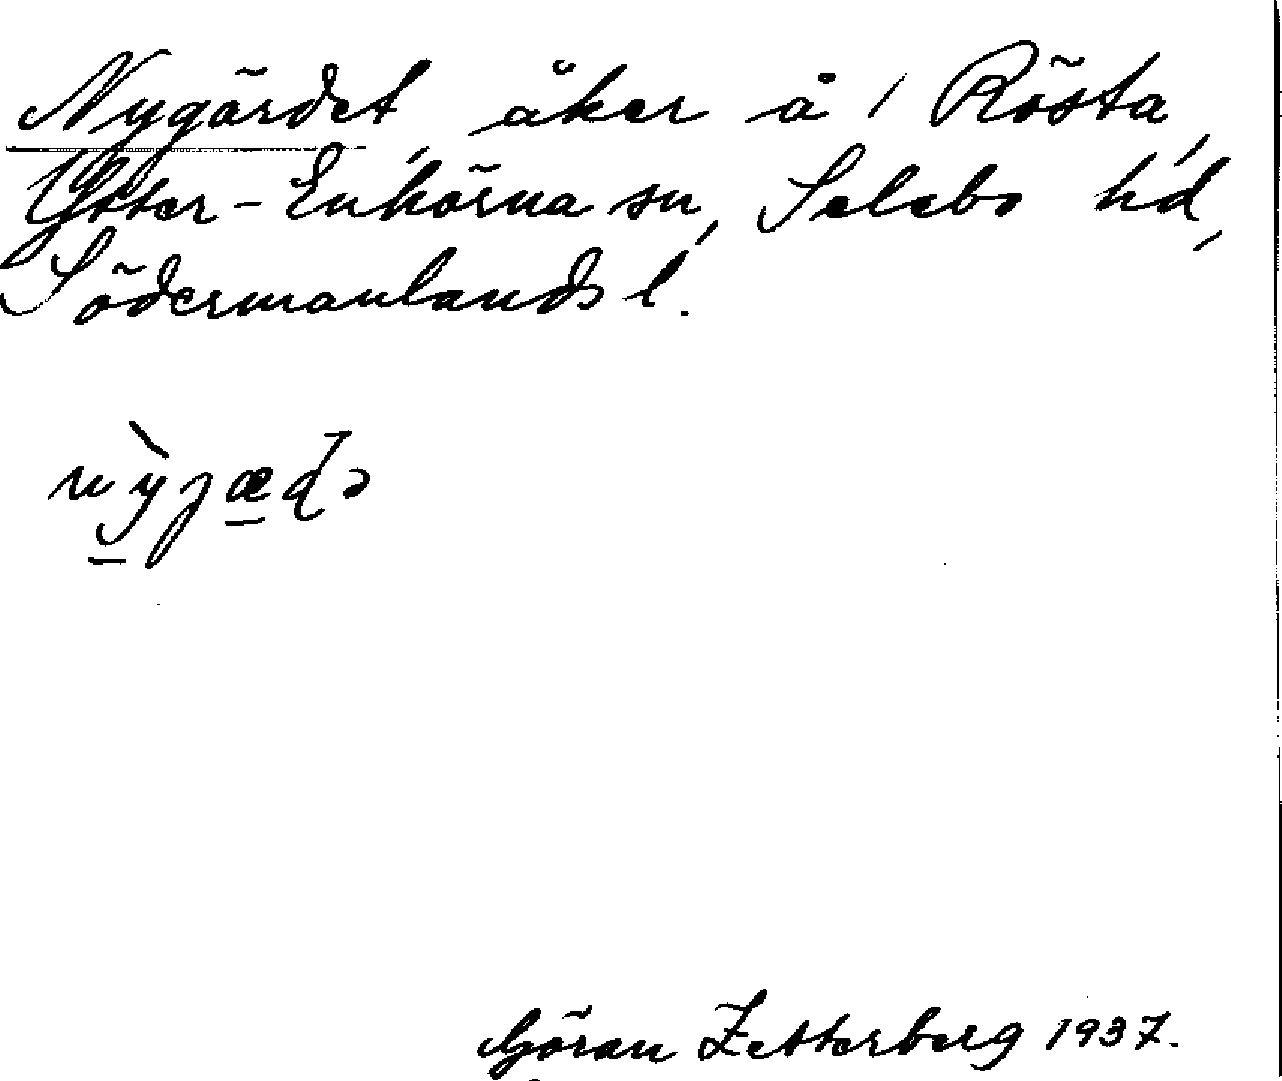 Nygärdet, åker å / Rösta,
Ytter-Enhörna sn, Selebo hd,
Södermanlands l.
Göran Zetterberg 1937.